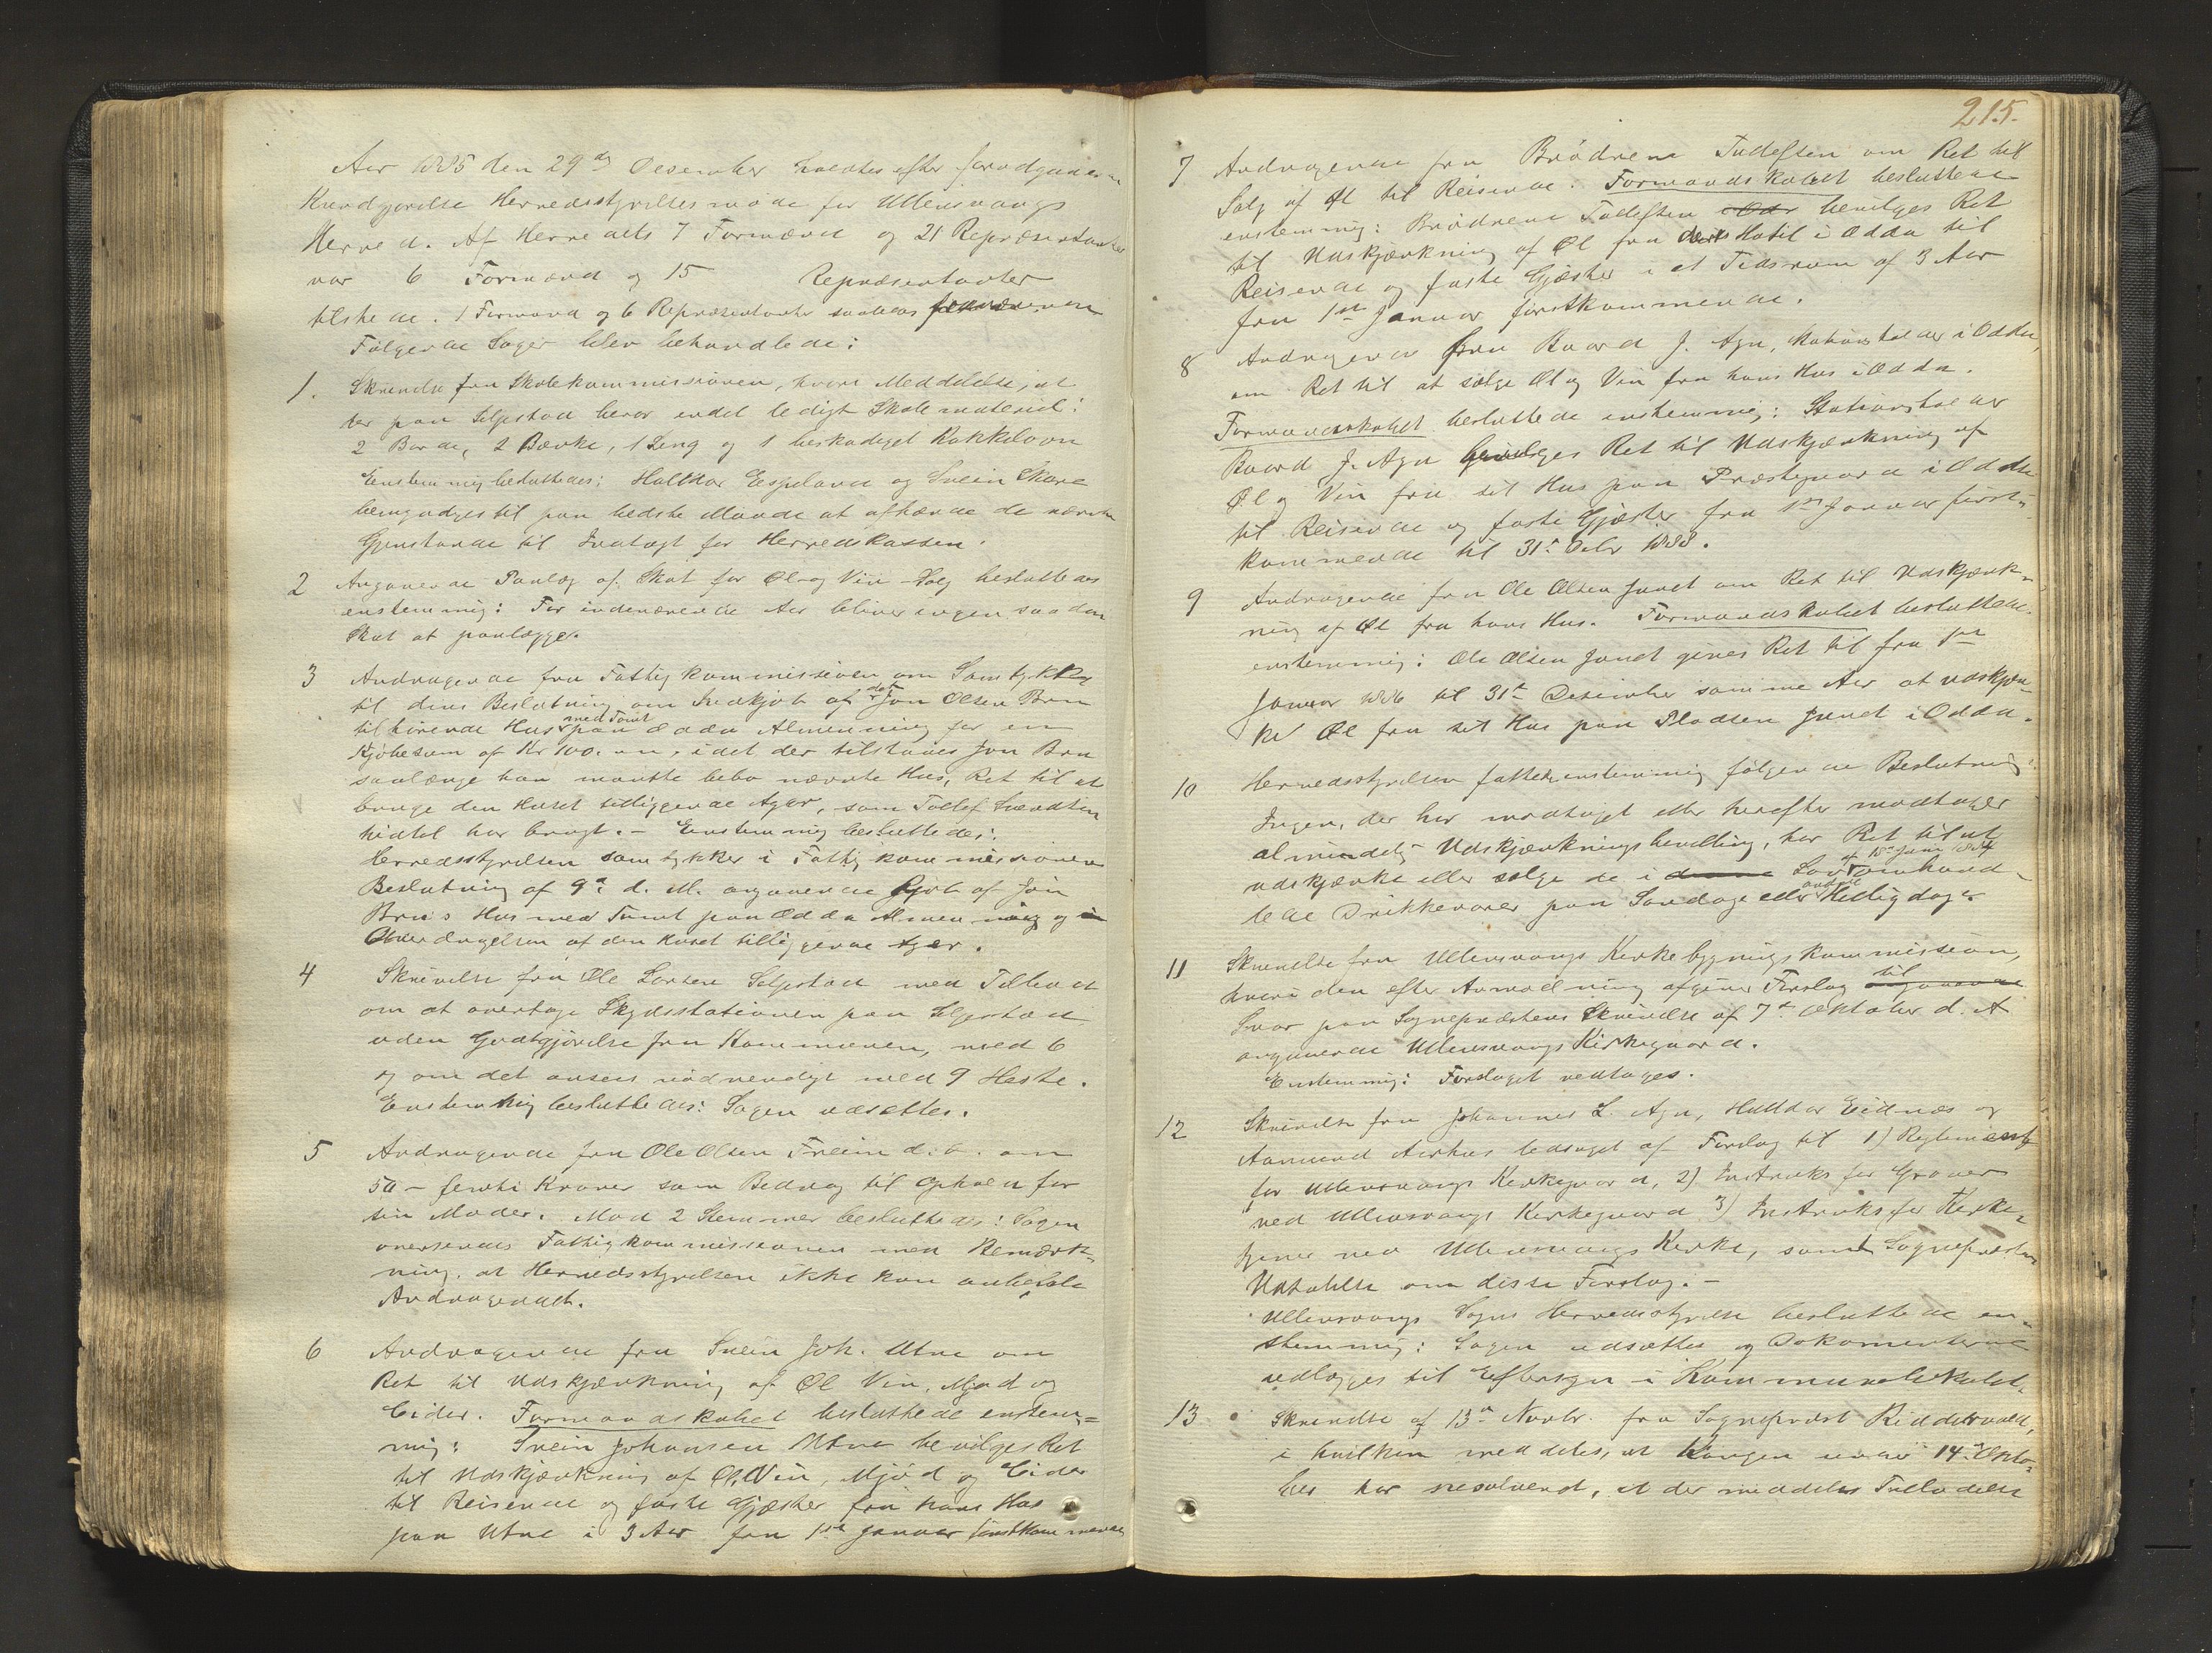 Aar 1885 den 29de Desember holdtes efter forudgaaende
Kundgjørelse Herredsstyrelsesmøde for Ullensvangs
Herred. Af Herredets 7 Formænd og 21 Repræsentanter
var 6 Formænd og 15 Repræsentanter
tilstede. 1 Formand og 6 Repræsentanter saaledes fraværende
Følgende Sager blev behandlede:
1. Skrivelse fra Skolekommissionen, hvori Meddelelse, at
der paa Seljestad beror endel ledigt Skolemateriel:
2 Borde, 2 Bænke, 1 Seng og 1 beskadiget Kakkelovn
Enstemmig besluttedes: Halldor Espeland og Svein Skare
bemyndiges til paa bedste Maade at afhænde de nævnte
Gjenstande til Indtægt for Herredskassen.
2 Angaaende Paalæg af Skat for Øl- og Vin-Salg besluttedes
enstemmig: For indeværende Aar bliver ingen saadan
Skat at paalægge.
3 Andragende fra Fattigkommissionen om Samtykke
til dens Beslutning om Indkjøb af det Jon Olsen Bru
tilhørende Hus med Tomt paa Odda Almenning for en
Kjøbesum af Kr 100.00, idet der tilstaaes Jon Bru
saalænge han maatte bebo nævnte Hus, Ret til at
bruge den Huset tilliggende Ager, som Tollef Svendsen
hidtil har brugt. – Enstemmig besluttedes:
Herredsstyrelsen samtykker i Fattigkommissionens
Beslutning af 9de d. M. angaaende Kjøb af Jon
Bru's Hus med Tomt paa Odda Almenning og
Overdragelsen af den Huset tilliggende Ager.
4 Skrivelse fra Ole Larsen Seljestad med Tilbud
om at overtage Skydsstationen paa Seljestad
uden Godtgjørelse fra Kommunen, med 6
og om det ansees nødvendigt med 9 Heste.
Enstemmig besluttedes: Sagen udsættes.
5 Andragende fra Ole Olsen Freim d. æ. om
50 – femti Kroner som Bidrag til Ophold for
sin Moder. Mod 2 Stemmer besluttedes: Sagen
oversendes Fattigkommissionen med Bemærk-
ning, at Herredsstyrelsen ikke kan anbefale
Andragendet.
6 Andragende fra Svein Joh. Utne om
Ret til Udskjænkning af Øl Vin, Mjød og
Cider. Formandskabet besluttede enstem=
mig: Svein Johansen Utne bevilges Ret
til Udskjænkning af Øl, Vin, Mjød og Cider
til Reisende og faste Gjæster fra hans Hus
paa Utne i 3 Aar fra 1ste Januar førstkommende
215.
7 Andragende fra Brødrene Tollefsen om Ret til
Salg af Øl til Reisende. Formandskabet besluttede
enstemmig: Brødrene Tollefsen i Odda bevilges Ret
til Udskjænkning af Øl fra deres Hotil i Odda til
Reisende og faste Gjæster i et Tidsrum af 3 Aar
fra 1ste Januar førstkommende.
8 Andragende fra Baard J. Aga, Stationsholder i Odda,
om Ret til at sælge Øl og Vin fra hans Hus i Odda.
Formandskabet besluttede enstemmig: Stationsholder
Baard J. Aga bevilges Ret til Udskjænkning af
Øl og Vin fra sit Hus paa Præstegaard i Odda
til Reisende og faste Gjæster fra 1ste Januar først-
kommende til 31te Decbr 1888.
9 Andragende fra Ole Olsen Jundt om Ret til Udskjænk-
ning af Øl fra hans Hus. Formandskabet besluttede
enstemmig: Ole Olsen Jundt gives Ret til fra 1ste
Januar 1886 til 31te Desember samme Aar at udskjæn-
ke Øl fra sit Hus paa Pladsen Jundt i Odda.
10 Herredsstyrelsen fattede enstemmig følgende Beslutning:
Ingen, der har modtaget eller herefter modtager
almindelig Udskjænkningsbevilling, har Ret til at
udskjænke eller sælge de i denne Lov af 15de Juni 1884 omhand-
lede Drikkevarer paa Søndage eller andre Helligdage.
11 Skrivelse fra Ullensvangs Kirkebygningskommission,
hvori den efter Anmodning afgiver Forslag til angaaende
Svar paa Sognepræstens Skrivelse af 7de Oktober d. A
angaaende Ullensvangs Kirkegaard.
Enstemmig: Forslaget vedtages.
12 Skrivelse fra Johannes L. Aga, Halldor Eidnæs og
Aamund Aarhus ledsaget af Forslag til 1) Reglement
for Ullensvangs Kirkegaard, 2) Instruks for Graver
ved Ullensvangs Kirkegaard 3) Instruks for Kirke-
tjener ved Ullensvangs Kirke, samt Sognepræstens
Udtalelse om disse Forslag. –
Ullensvangs Sogns Herredsstyrelse besluttede en-
stemmig: Sagen udsættes og Dokumenterne
udlægges til Eftersyn i Kommunelokalet.
13 Skrivelse af 13de Novbr. fra Sognepræst Riddervold,
i hvilken meddeles, at Kongen under 14de Okto-
ber har resolveret, at der meddeles Tilladelse